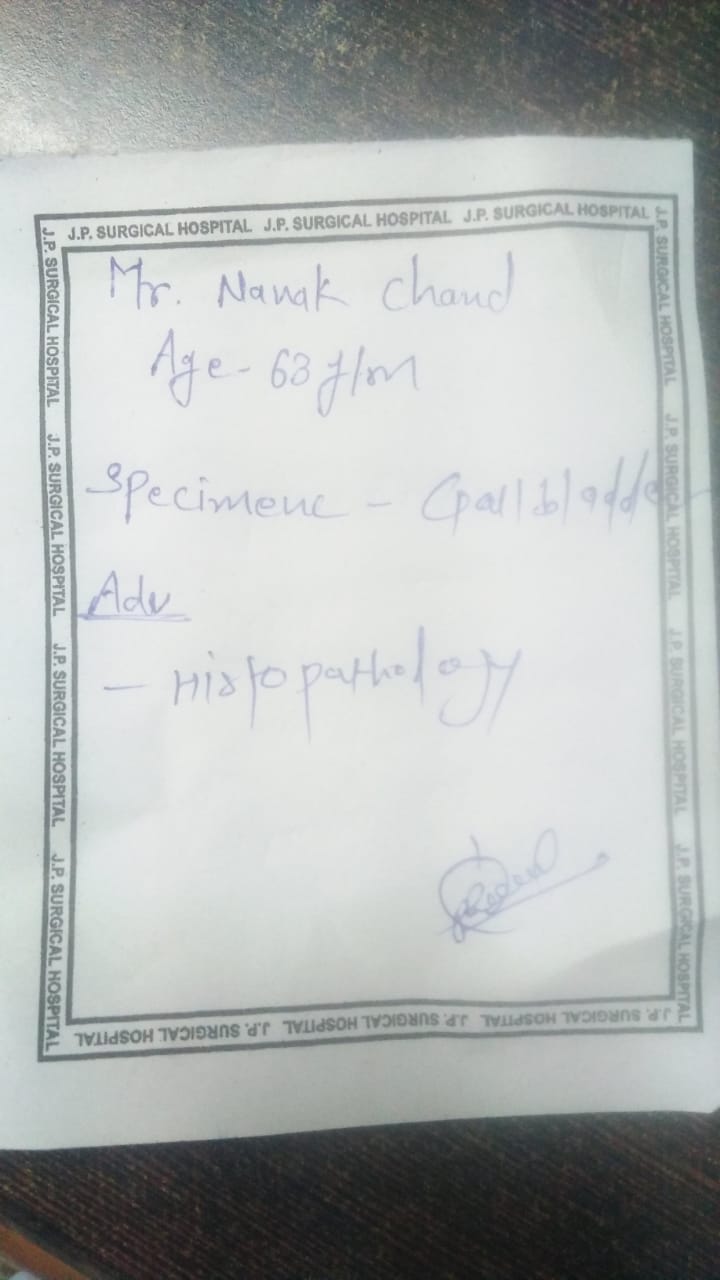 J.P. SURGICAL HOSPITAL J.P. SURGICAL HOSPITAL J.P. SURGICAL HOSPITAL
Mr. Nanak Chand
Age - 63 y/m
Specimene - Gallbladder
Adv
- Histopathology
J.P. SURGICAL HOSPITAL J.P. SURGICAL HOSPITAL J.P. SURGICAL HOSPITAL
J.P. SURGICAL HOSPITAL J.P. SURGICAL HOSPITAL J.P. SURGICAL HOSPITAL J.P. SURGICAL HOSPITAL
J.P. SURGICAL HOSPITAL J.P. SURGICAL HOSPITAL J.P. SURGICAL HOSPITAL J.P. SURGICAL HOSPITAL